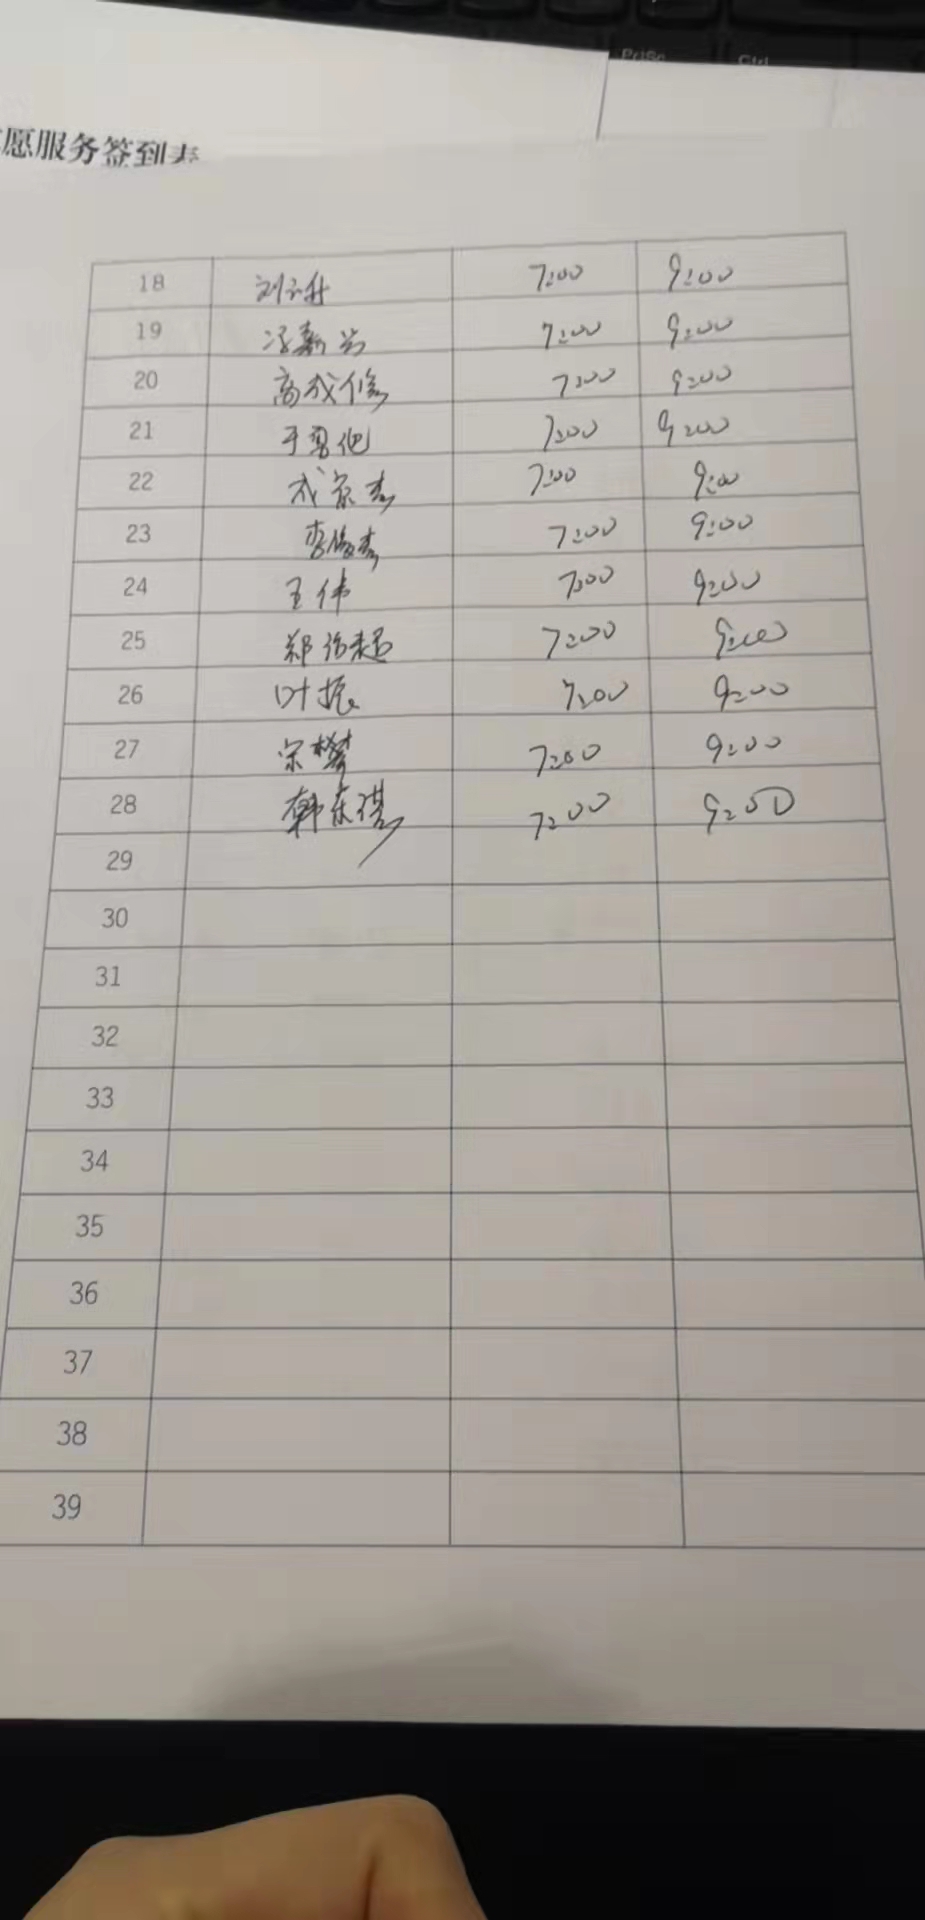 愿服务签到表
18 刘子升 7:00 9:00
19 冯嘉兴 7:00 9:00
20 高成修 7:00 9:00
21 于勇他 7:00 9:00
22 成京杰 7:00 9:00
23 李俊杰 7:00 9:00
24 王伟 7:00 9:00
25 郑超 7:00 9:00
26 叶振 7:00 9:00
27 宋攀 7:00 9:00
28 韩东琪 7:00 9:00
29
30
31
32
33
34
35
36
37
38
39
PrtSc Ctrl